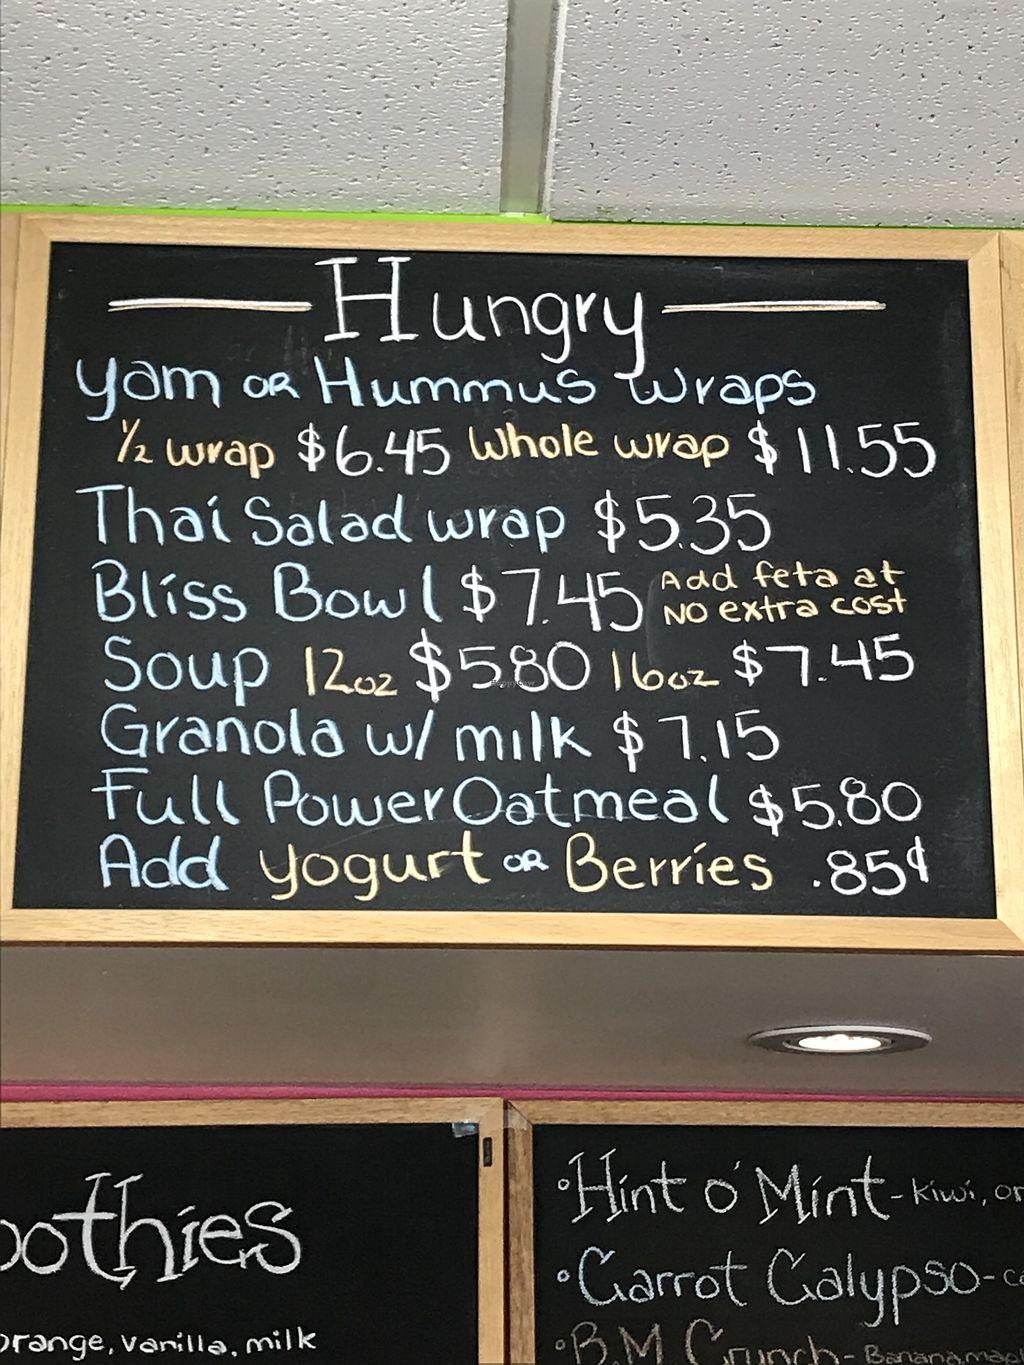 Hungry
Yam OR Hummus Wraps
1/2 wrap $6.45 Whole wrap $11.55
Thai Salad wrap $5.35
Bliss Bowl $7.45 Add feta at
NO extra cost
Soup 12oz $5.80 16oz $7.45
Granola w/ milk $7.15
Full Power Oatmeal $5.80
Add Yogurt OR Berries .85¢
oothies
orange, vanilla, milk
•Hint o' Mint - kiwi, or
•Carrot Calypso - ca
•B.M. Crunch - Banana, mapl